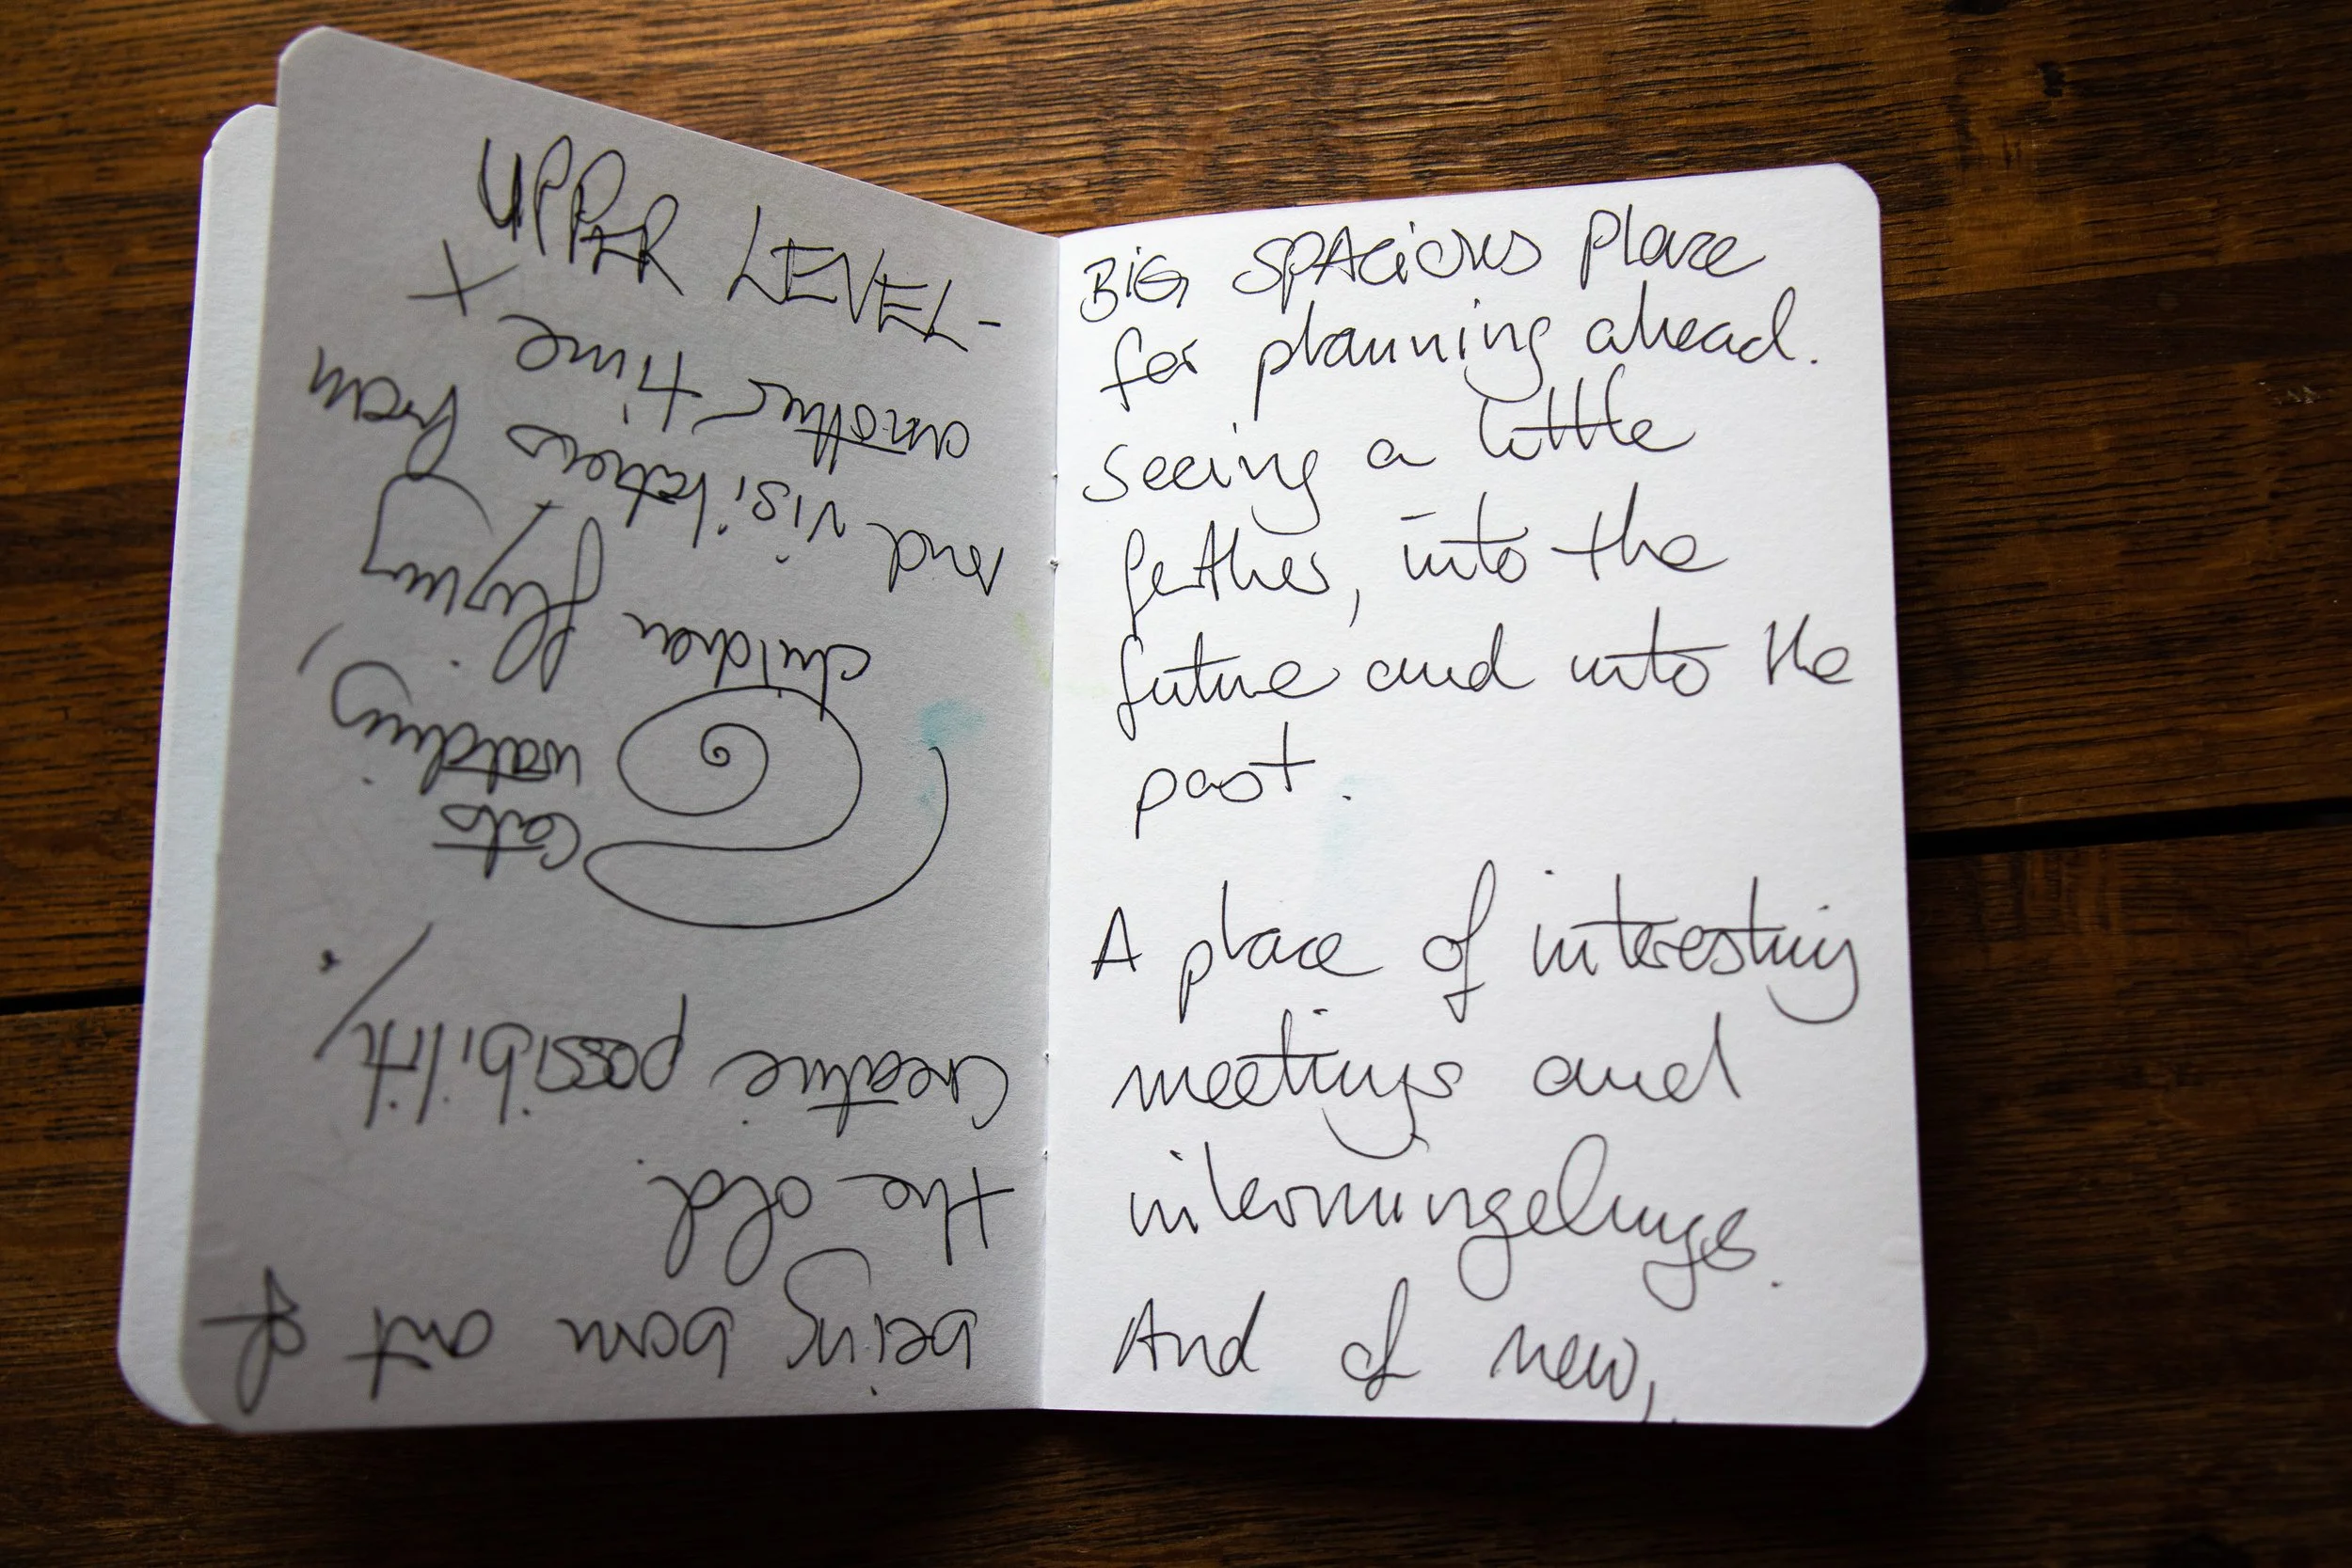 BiG SPACiOUS place
for planning ahead.
seeing a little
ferther, into the
future and into the
past.
A place of interesting
meetings and
intermingelings.
And of new,
being born out of
the old.
Creative possibility.
cats
watching,
children flying
and visitations from
another time x
- LEVEL UPPER